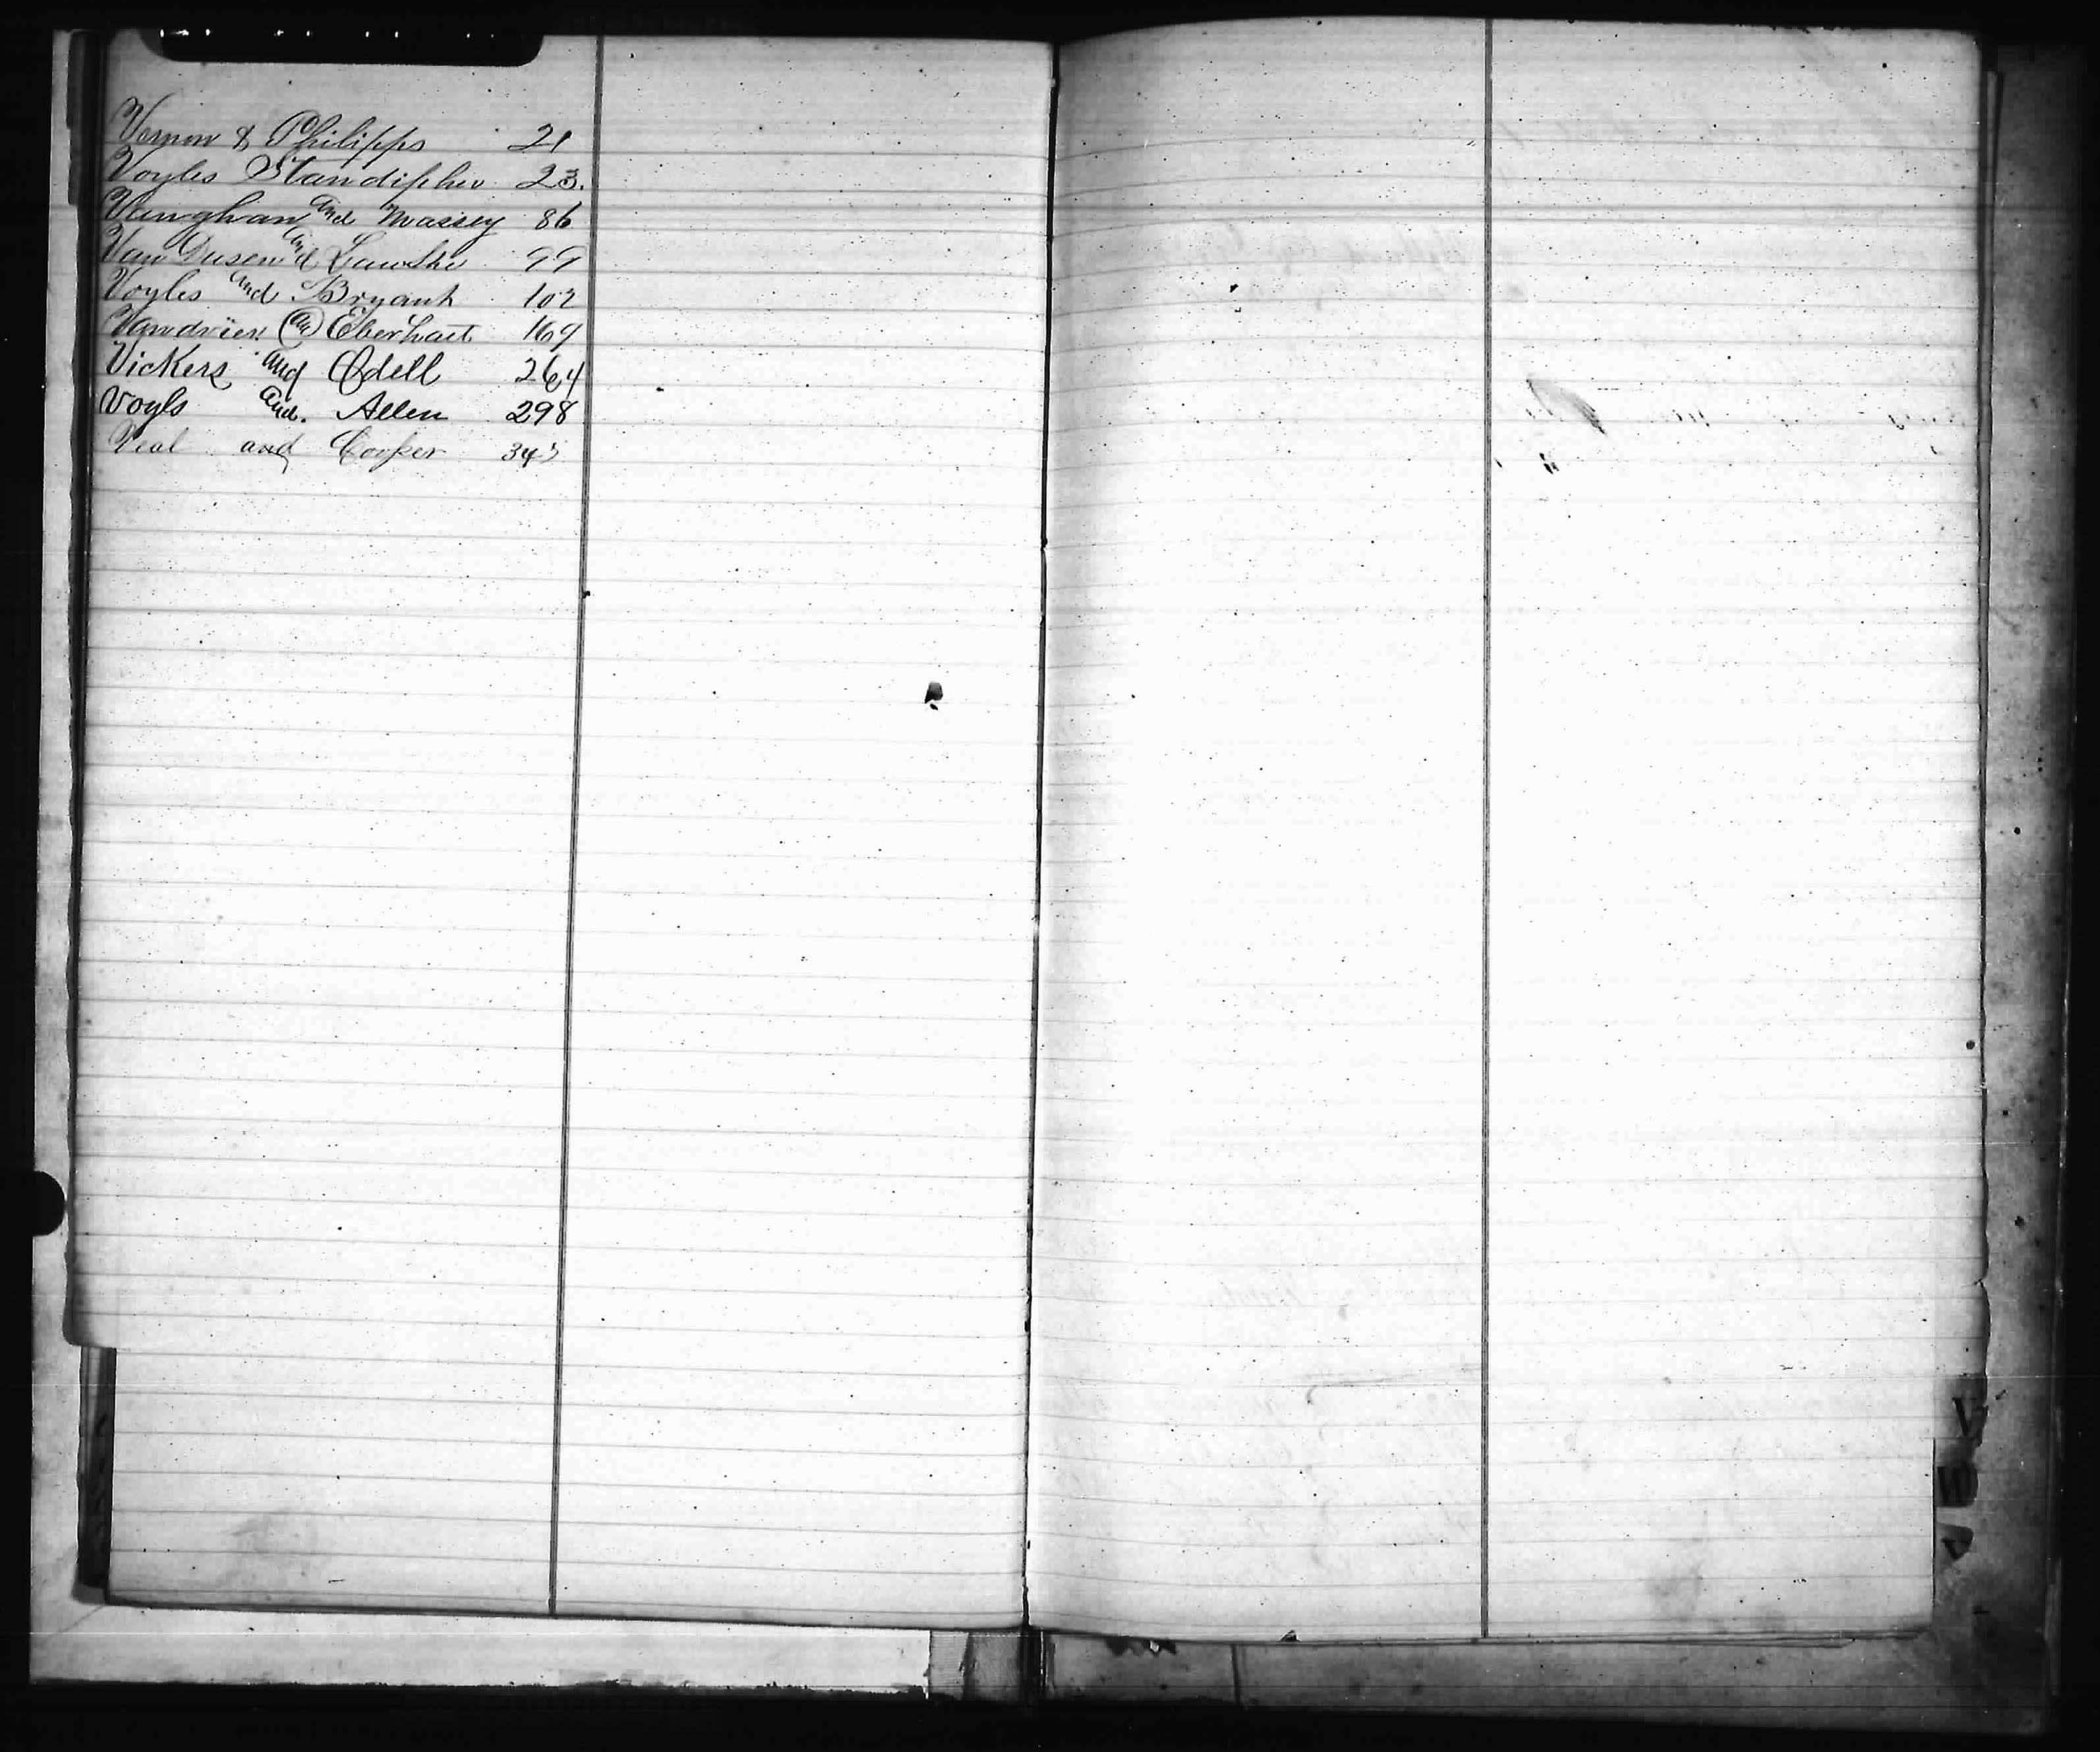 Vernon & Philipps 21
Voyles Standifher 23.
Vaughan and Massey 86
Van Dusen and Lawshe 99
Voyles and Bryant 102
Vandrier an Eberhart 169
Vickers and Odell 264
Voyls and. Allen 298
Veal and Cooper 345
V
W